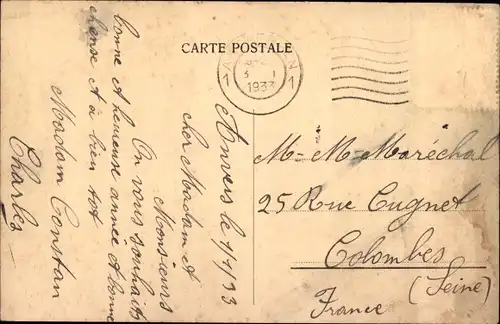 CARTE POSTALE
1 1
3 I
1933
Anvers le 1/1/33
cher Madam et
Monsieurs
On vous souhaite
bonne et heureuse année et bonne
chense et à bien tot
Madam Constan
Charles
M- M- Maréchal
25 Rue Cugnet
Colombes
(Seine)
France